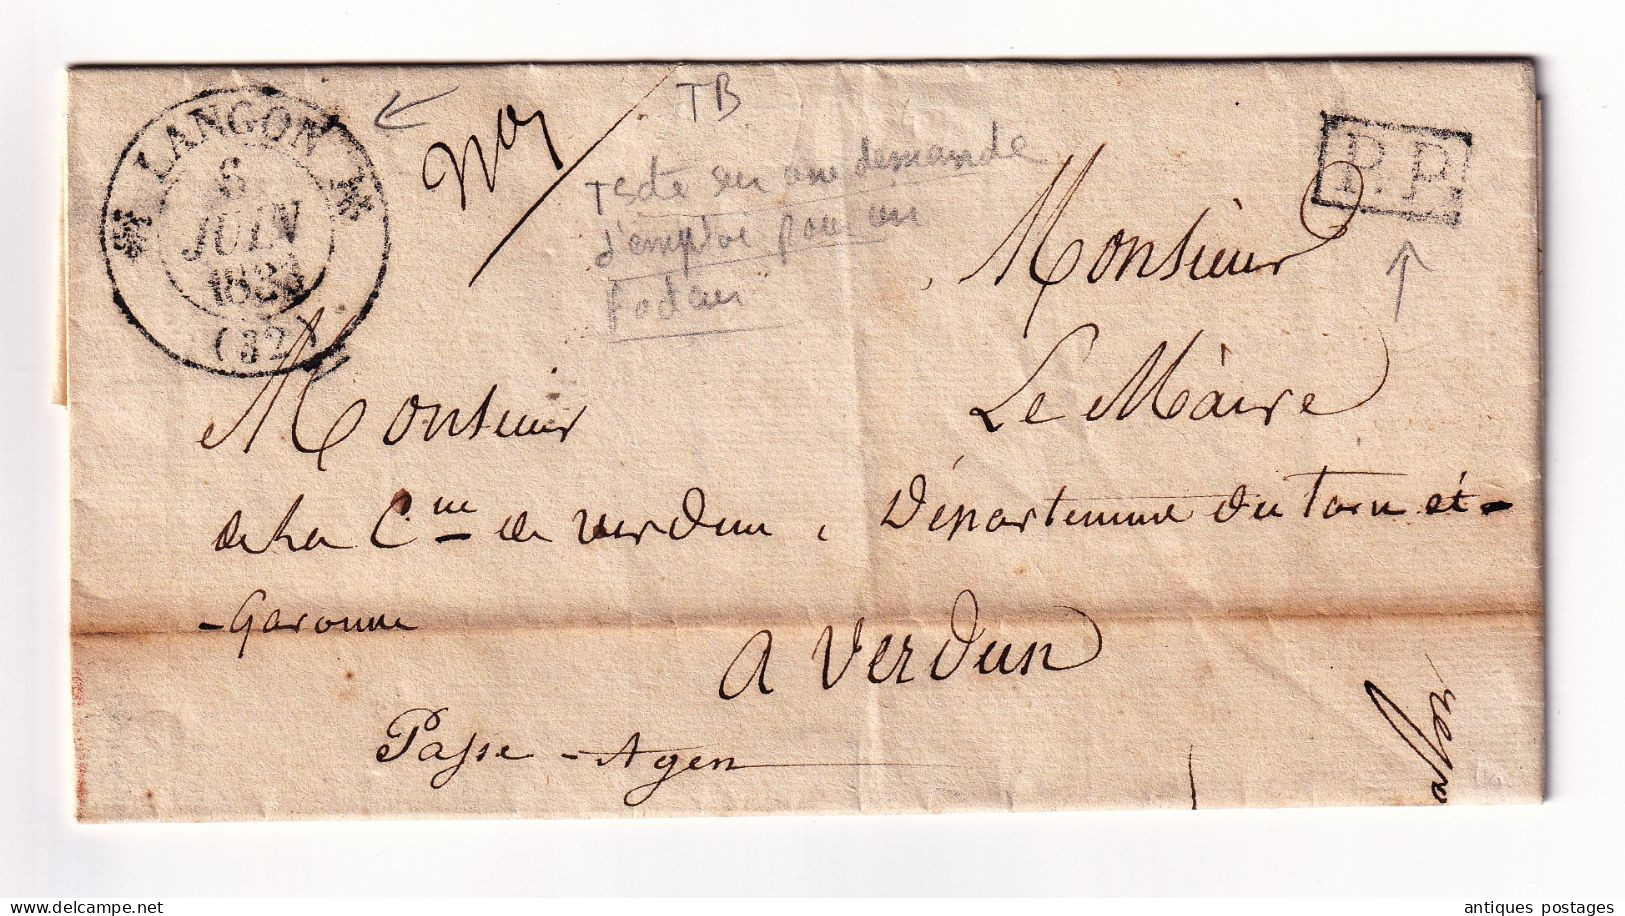 LANGON
6
JUIN
183
(32)
TB
Texte sur une demande
d'emploi pour un
Facteur
P.P.
Monsieur
Le Màire
Monsieur
de La C.ne de verdun, Département du Tarn et-
-Garonne
A Verdun
Passe-Agen
antiques postages